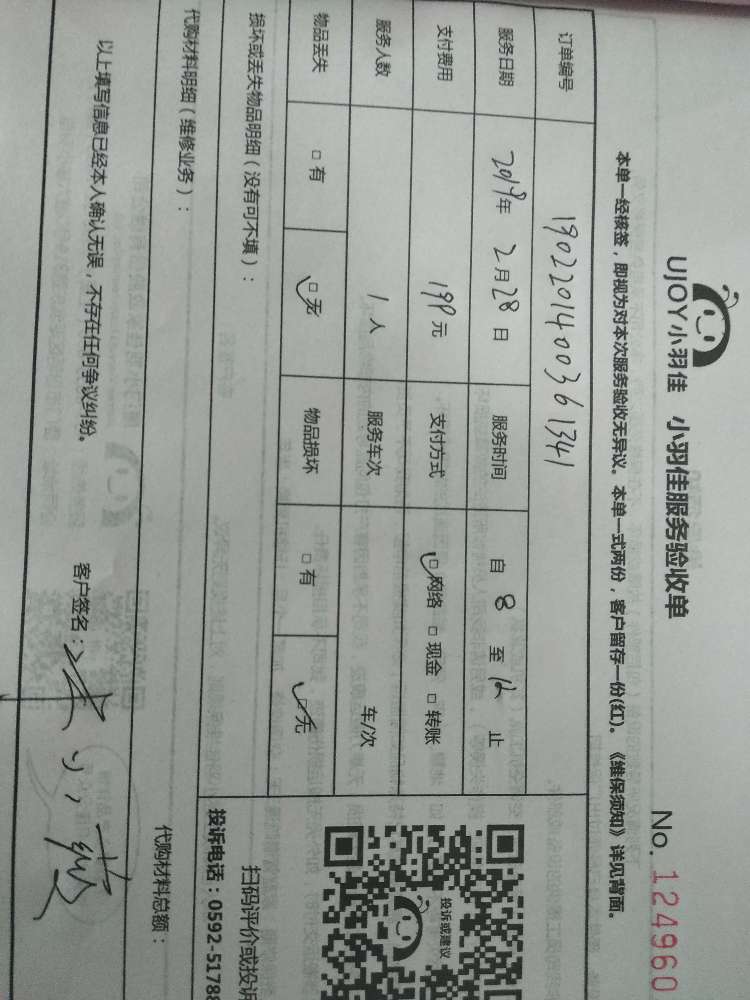 UJOY小羽佳 小羽佳服务验收单 No. 124960
本单一经核签，即视为对本次服务验收无异议。本单一式两份，客户留存一份(红)。《维保须知》详见背面。
订单编号 1902201400361341
服务日期 2019年 2月28日 服务时间 自 8 至 12 止
支付费用 199元 支付方式 □网络 □现金 □转账
服务人数 1人 服务车次 车/次
物品丢失 □有 □无 物品损坏 □有 □无
损坏或丢失物品明细（没有可不填）：
投诉或建议
扫码评价或投诉
投诉电话：0592-5178
代购材料明细（维修业务）： 代购材料总额：
以上填写信息已经本人确认无误，不存在任何争议纠纷。 客户签名：